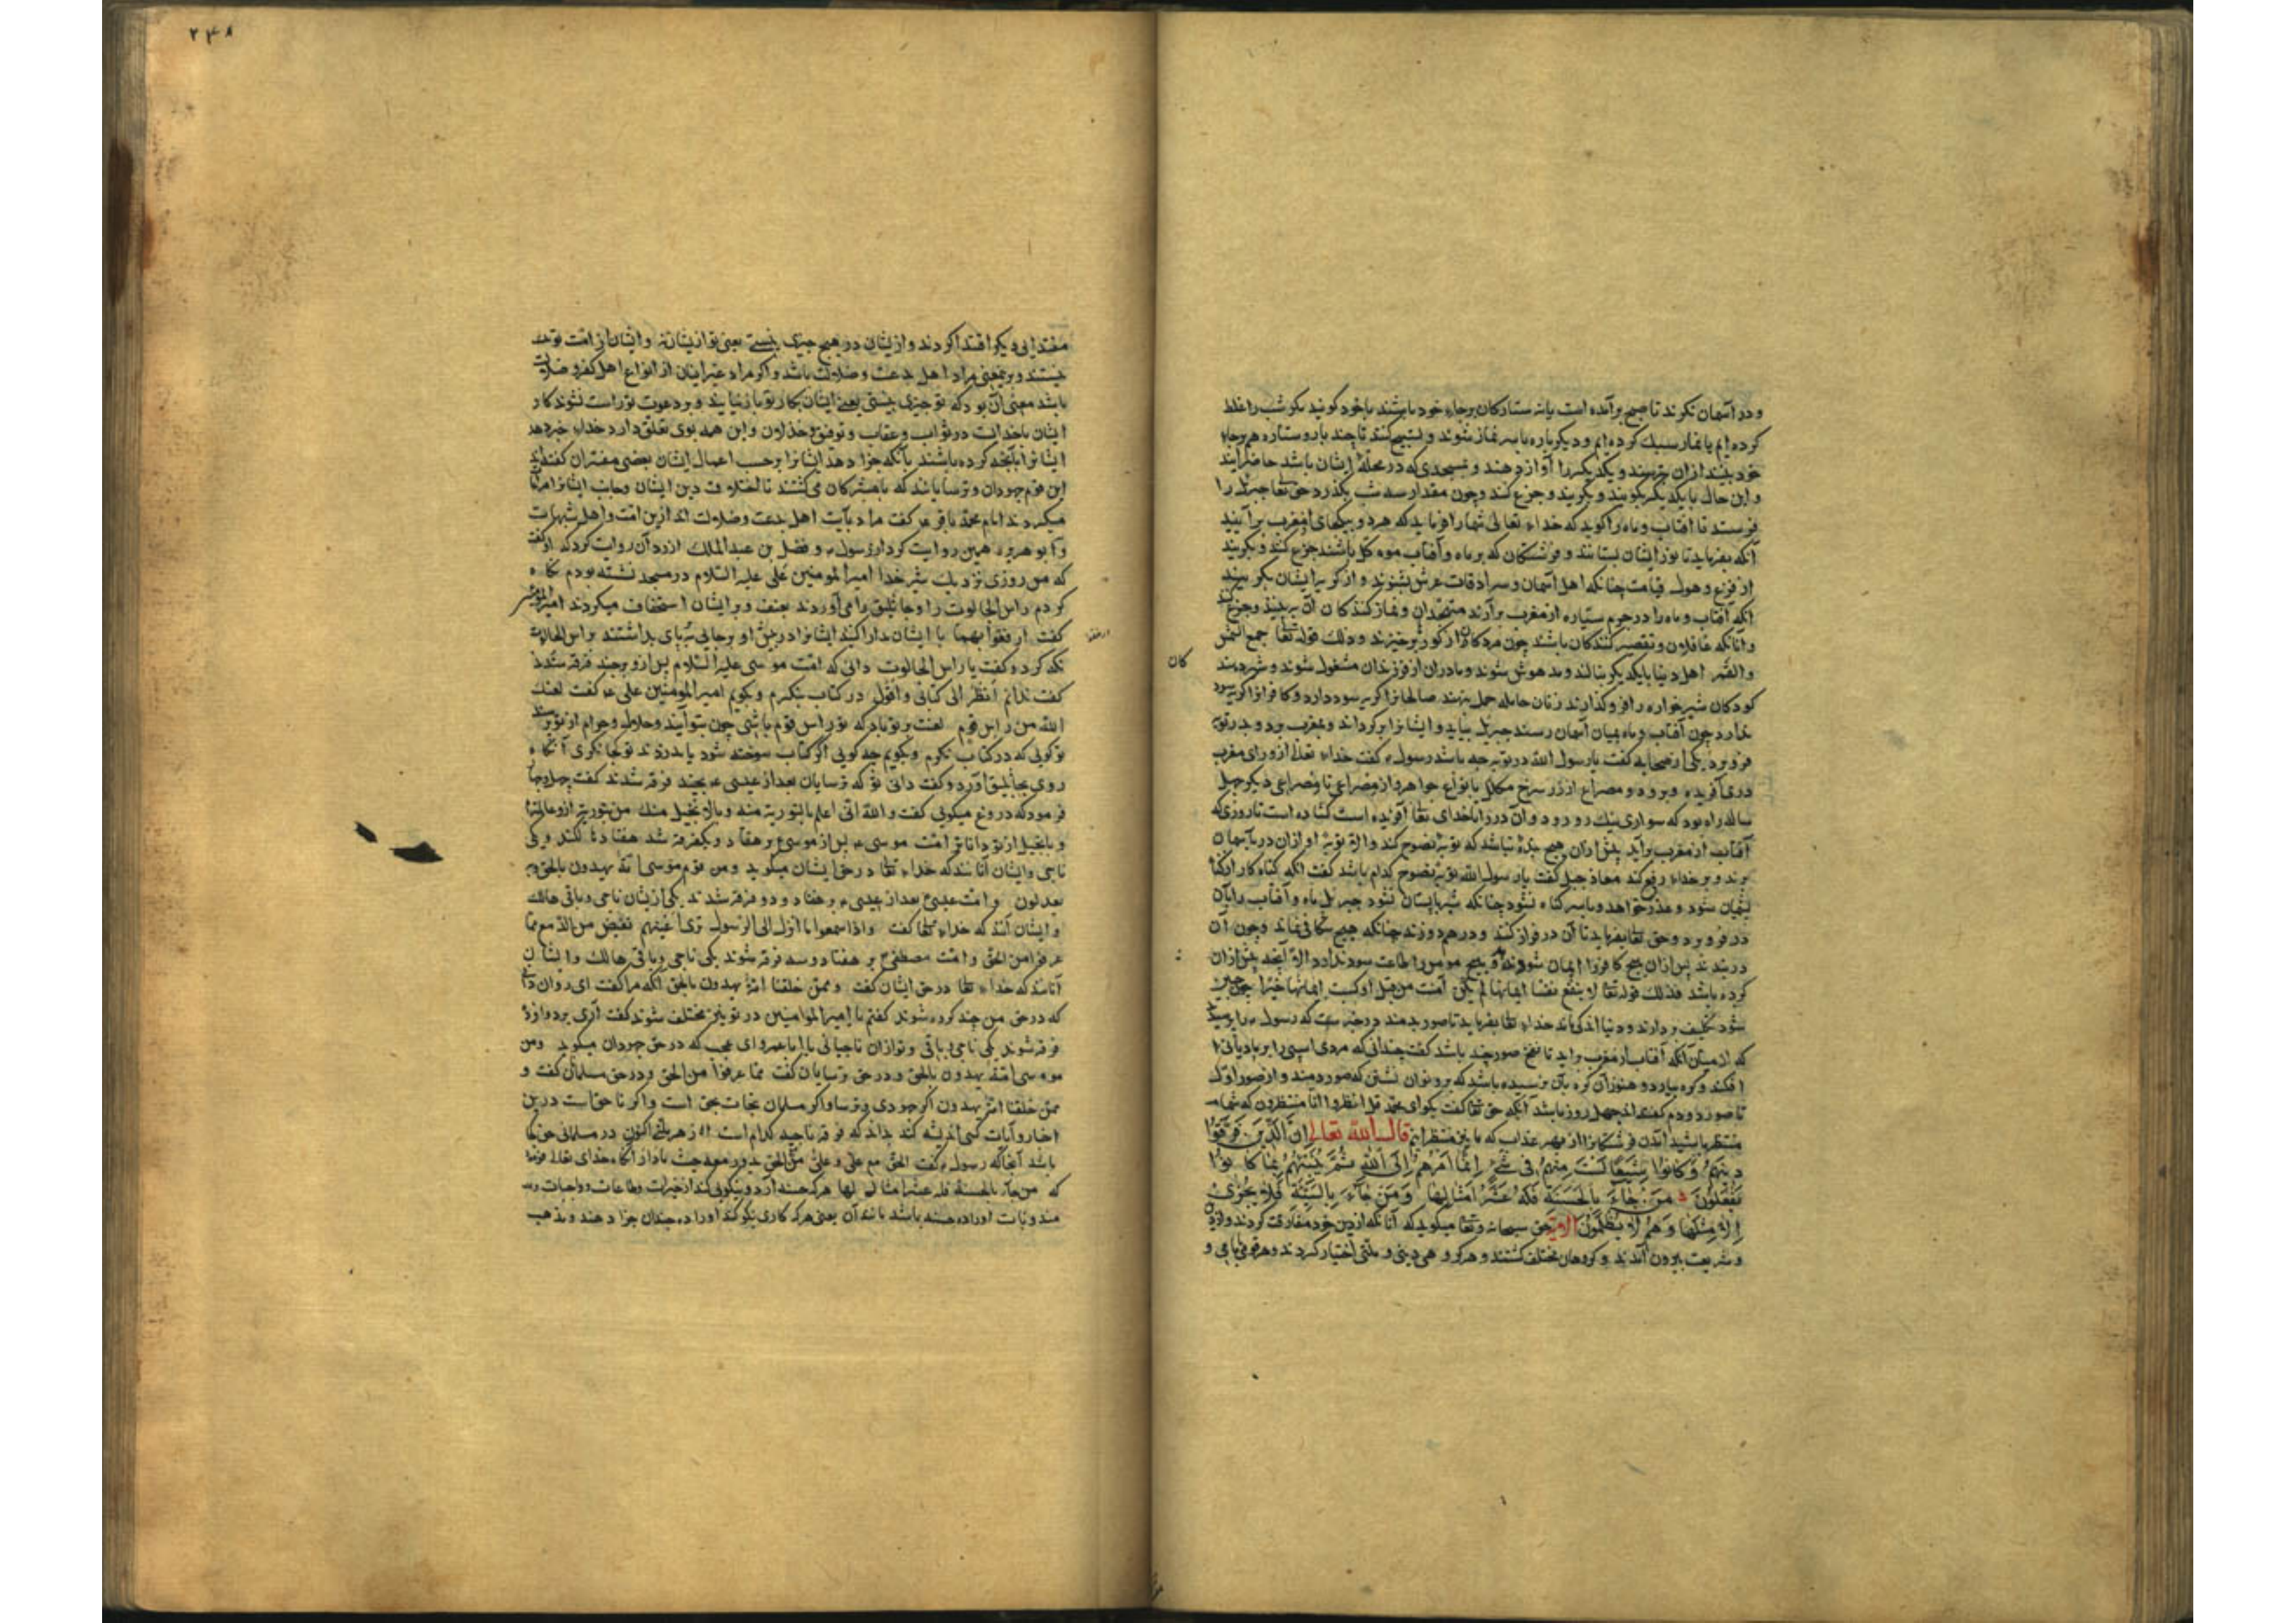 و در آسمان نکرند تا صبح برآمده است یا نه ستارکان برجاء خود باشند با خود کویند مکر شب را غلط
کرده ایم یا نماز سبک کرده ایم و دیکر باره با سر نماز شوند و تسبیح کنند تا چند بار و ستاره هم برجاء
خود بینند ازان بترسند و یکدیکر را آواز دهند و بمسجدی که در محلهٔ ایشان باشد حاضر آیند
و این حال با یکدیکر بکویند و بکریند و جزع کنند و چون مقدار سه شب بکذرد حق تعا جبرئل را
فرستد تا آفتاب و ماه را کوید که خداء تعالی شما را فرماید که هر دو بیکجای از مغرب برآیید
آنکه بفرماید تا نور ایشان بستانند و فرشتکان که بر ماه و آفتاب موکل باشند جزع کنند و بکریند
از فزع و هول قیامت چنانکه اهل آسمان و سرادقات عرش بشنوند و از کریه ایشان بکریند
آنکه آفتاب و ماه را در جرم سیاه از مغرب برآرند متهجدان و نماز کنندکان آن ببینند و جزع کنند
و آنانکه غافلان و تقصیر کنندکان باشند چون مردکان از کور برخیزند و ذلک قوله تعا جمع الشمس
کان
والقمر اهل دنیا با یکدیکر بنالند و مدهوش شوند و مادران از فرزندان مشغول شوند و شیردهند
کودکان شیرخواره را فروکذارند زنان حامله حمل بنهند صالحانرا کریه سود دارد و کافرانرا کریه سود
ندارد چون آفتاب و ماه بمیان آسمان رسند جبرئل بیاید و ایشانرا برکرداند و بمغرب برد و بدر توبه
فرو برد یکی از صحابه کفت یا رسول الله در توبه چه باشد رسول ء کفت خداء تعالی از ورای مغرب
دری آفریده و برو دو مصراع از زر سرخ مکلل بانواع جواهر و از مصراعی تا مصراعی دیکر چهل
ساله راه بود که سواری نیک رو رود و آن در را تا خدای تعا آفریده است کشاده است تا روزی که
آفتاب از مغرب برآید پیش ازان هیچ بندهٔ نباشد که توبهٔ نصوح کند و الا توبهٔ او ازان در بآسمان
برند و بر خداء رفع کند معاذ جبل کفت یا رسول الله توبهٔ نصوح کدام باشد کفت آنکه کناه کار از کناه
پشیمان شود و عذر خواهد و با سر کناه نشود چنانکه شیر با پستان نشود جبرئل ماه و آفتاب را بآن
در فرو برد و حق تعا بفرماید تا آن در فراز کنند و در هم دوزند چنانکه هیچ شکافی نماند و چون آن
در ببندند پس ازان هیچ کافر را ایمان سود ندارد و هیچ مومن را طاعت سود ندارد الا آنچه پیش ازان
کرده باشد فذلک قوله تعا لا ینفع نفسا ایمانها لم تکن آمنت من قبل او کسبت فی ایمانها خیرا چون چنین
شود تکلیف بردارند و دنیا اندکی ماند خداء تعا بفرماید تا صور بدمند در خبر ست که رسول ء را پرسیدند
که از میان آنکه آفتاب از مغرب برآید تا نفخ صور چند باشد کفت چندانی که مردی اسبی را بر مادیانی
افکند و کره بیارد و هنوز آن کره بآن نرسیده باشد که برو توان نشستن که صور دمند و از صور اول
تا صور دوم کفت چهل روز باشد آنکه حق تعا کفت بکو ای محمد قل انتظروا انا منتظرون که شما
منتظر باشید آمدن فرشتکانرا از بهر عذاب که ما نیز منتظرانیم قال الله تعالی اِنَّ الَّذِینَ فَرَّقُوا
دِینَهُمْ وَکَانُوا شِیَعًا لَسْتَ مِنْهُمْ فِی شَیْءٍ اِنَّمَا اَمْرُهُمْ اِلَی اللّٰهِ ثُمَّ یُنَبِّئُهُمْ بِمَا کَانُوا
یَفْعَلُونَ مَنْ جَاءَ بِالْحَسَنَةِ فَلَهُ عَشْرُ اَمْثَالِهَا وَمَنْ جَاءَ بِالسَّیِّئَةِ فَلَا یُجْزَی
اِلَّا مِثْلَهَا وَهُمْ لَا یُظْلَمُونَ الآیة حق سبحانه و تعا میکوید که آنانکه از دین خود مفارقت کردند و از دین
و شریعت بیرون آمدند و کروهان مختلف کشتند و هر کروهی دینی و ملتی اختیار کردند و هر قومی بامامی و
۲۳۸
مقتدایی دیکر اقتدا کردند و ازیشان در هیچ چیزی نیستی یعنی تو ازیشان نهٔ و ایشان از امت تو
نیستند و برین معنی مراد اهل بدعت و ضلالت باشد و اکر مراد غیر اینان از انواع اهل کفر و ضلالت
باشد معنی آن بود که تو چیزی نیستی یعنی ایشان بکار تو باز نیایند و بر دعوت تو راست نشوند کار
ایشان با خداست در ثواب و عقاب و توفیق و خذلان و این همه بوی تعلق دارد خداء خبر دهد
ایشانرا بآنچه کرده باشند بآنکه جزا دهد ایشانرا بر حسب اعمال ایشان بعضی مفسران کفتند
این قوم جهودان و ترسایانند که با مشرکان می کشتند تا اختلاف دین ایشان و حمایت ایشانرا
میکردند امام محمد باقر ء کفت مراد بآیت اهل بدعت و ضلالت اند ازین امت و اهل شبهات
و ابو هریره همین روایت کرد از رسول ء و فضل بن عبد الملک از زاذان روایت کرد که او کفت
که من روزی نزدیک شیر خدا امیر المومنین علی علیه السلام در مسجد نشسته بودم نکاه
کردم راس الجالوت را و جاثلیق را می آوردند بعنف و بر ایشان استخفاف میکردند امیر المومنین
کفت ارفقوا بهما با ایشان مدارا کنید ایشانرا در پیش او برجایی بپای بداشتند براس الجالوت
نکه کرد و کفت یا راس الجالوت دانی که امت موسی علیه السلام پس ازو بر چند فرقه شدند
کفت ندانم انظر الی کتابی و اقول در کتاب بنکرم و بکویم امیر المومنین علی ء کفت لعنک
الله من راس قوم لعنت بر تو باد که تو راس قوم باشی چون بتو آیند و حلال و حرام از تو پرسند
تو کویی که در کتاب نکرم و بکویم چه کویی اکر کتاب سوخته شود یا بدرزدند تو کجا نکری آنکاه
روی بجاثلیق آورد و کفت دانی تو که ترسایان بعد از عیسی ء بچند فرقه شدند کفت چهل و
فرمود که دروغ میکویی کفت والله انی اعلم بالتوریة منه و بالانجیل منک من بتوریة ازو عالمترم
و بانجیل از تو داناترم امت موسی ء پس از موسی بر هفتاد و یک فرقه شد هفتاد هالکند و یکی
ناجی و ایشان آنانند که خداء تعا در حق ایشان میکوید و من قوم موسی امة یهدون بالحق و به
یعدلون و امت عیسی بعد از عیسی ء بر هفتاد و دو فرقه شدند یکی ازیشان ناجی و باقی هالک
و ایشان آنند که خداء تعا کفت واذا سمعوا ما انزل الی الرسول تری اعینهم تفیض من الدمع مما
عرفوا من الحق و امت مصطفی بر هفتاد و سه فرقه شوند یکی ناجی و باقی هالک و ایشان
آنانند که خداء تعا در حق ایشان کفت وممن خلقنا امة یهدون بالحق آنکه مرا کفت ای زاذان دانی
که در حق من چند کرده شوند کفتم یا امیر المومنین در تو نیز مختلف شوند کفت آری بر دوازده
فرقه شوند یکی ناجی و باقی و تو ازان ناجیانی یا با عمرو ای عجب که در حق جهودان میکوید ومن قوم
موسی امة یهدون بالحق و در حق ترسایان کفت مما عرفوا من الحق و در حق مسلمانان کفت و
ممن خلقنا امة یهدون اکر جهودی و ترسا و اکر مسلمان نجات بحق است و اکر ناحق است درین
اخبار و آیات کسی اندیشه کند بداند که فرقه ناجیه کدام است از هر ملتی اکنون در مسلمانی حق
باشد آنجا که رسول ء کفت الحق مع علی و علی مع الحق یدور معه حیث ما دار آنکاه خدای تعالی فرمود
که من جاء بالحسنة فله عشر امثالها هر که حسنه آرد و نیکویی کند از خیرات و طاعات و واجبات و
مندوبات او را ده حسنه باشد مانند آن یعنی هر که کاری نیکو کند او را ده چندان جزا دهند و مذهب